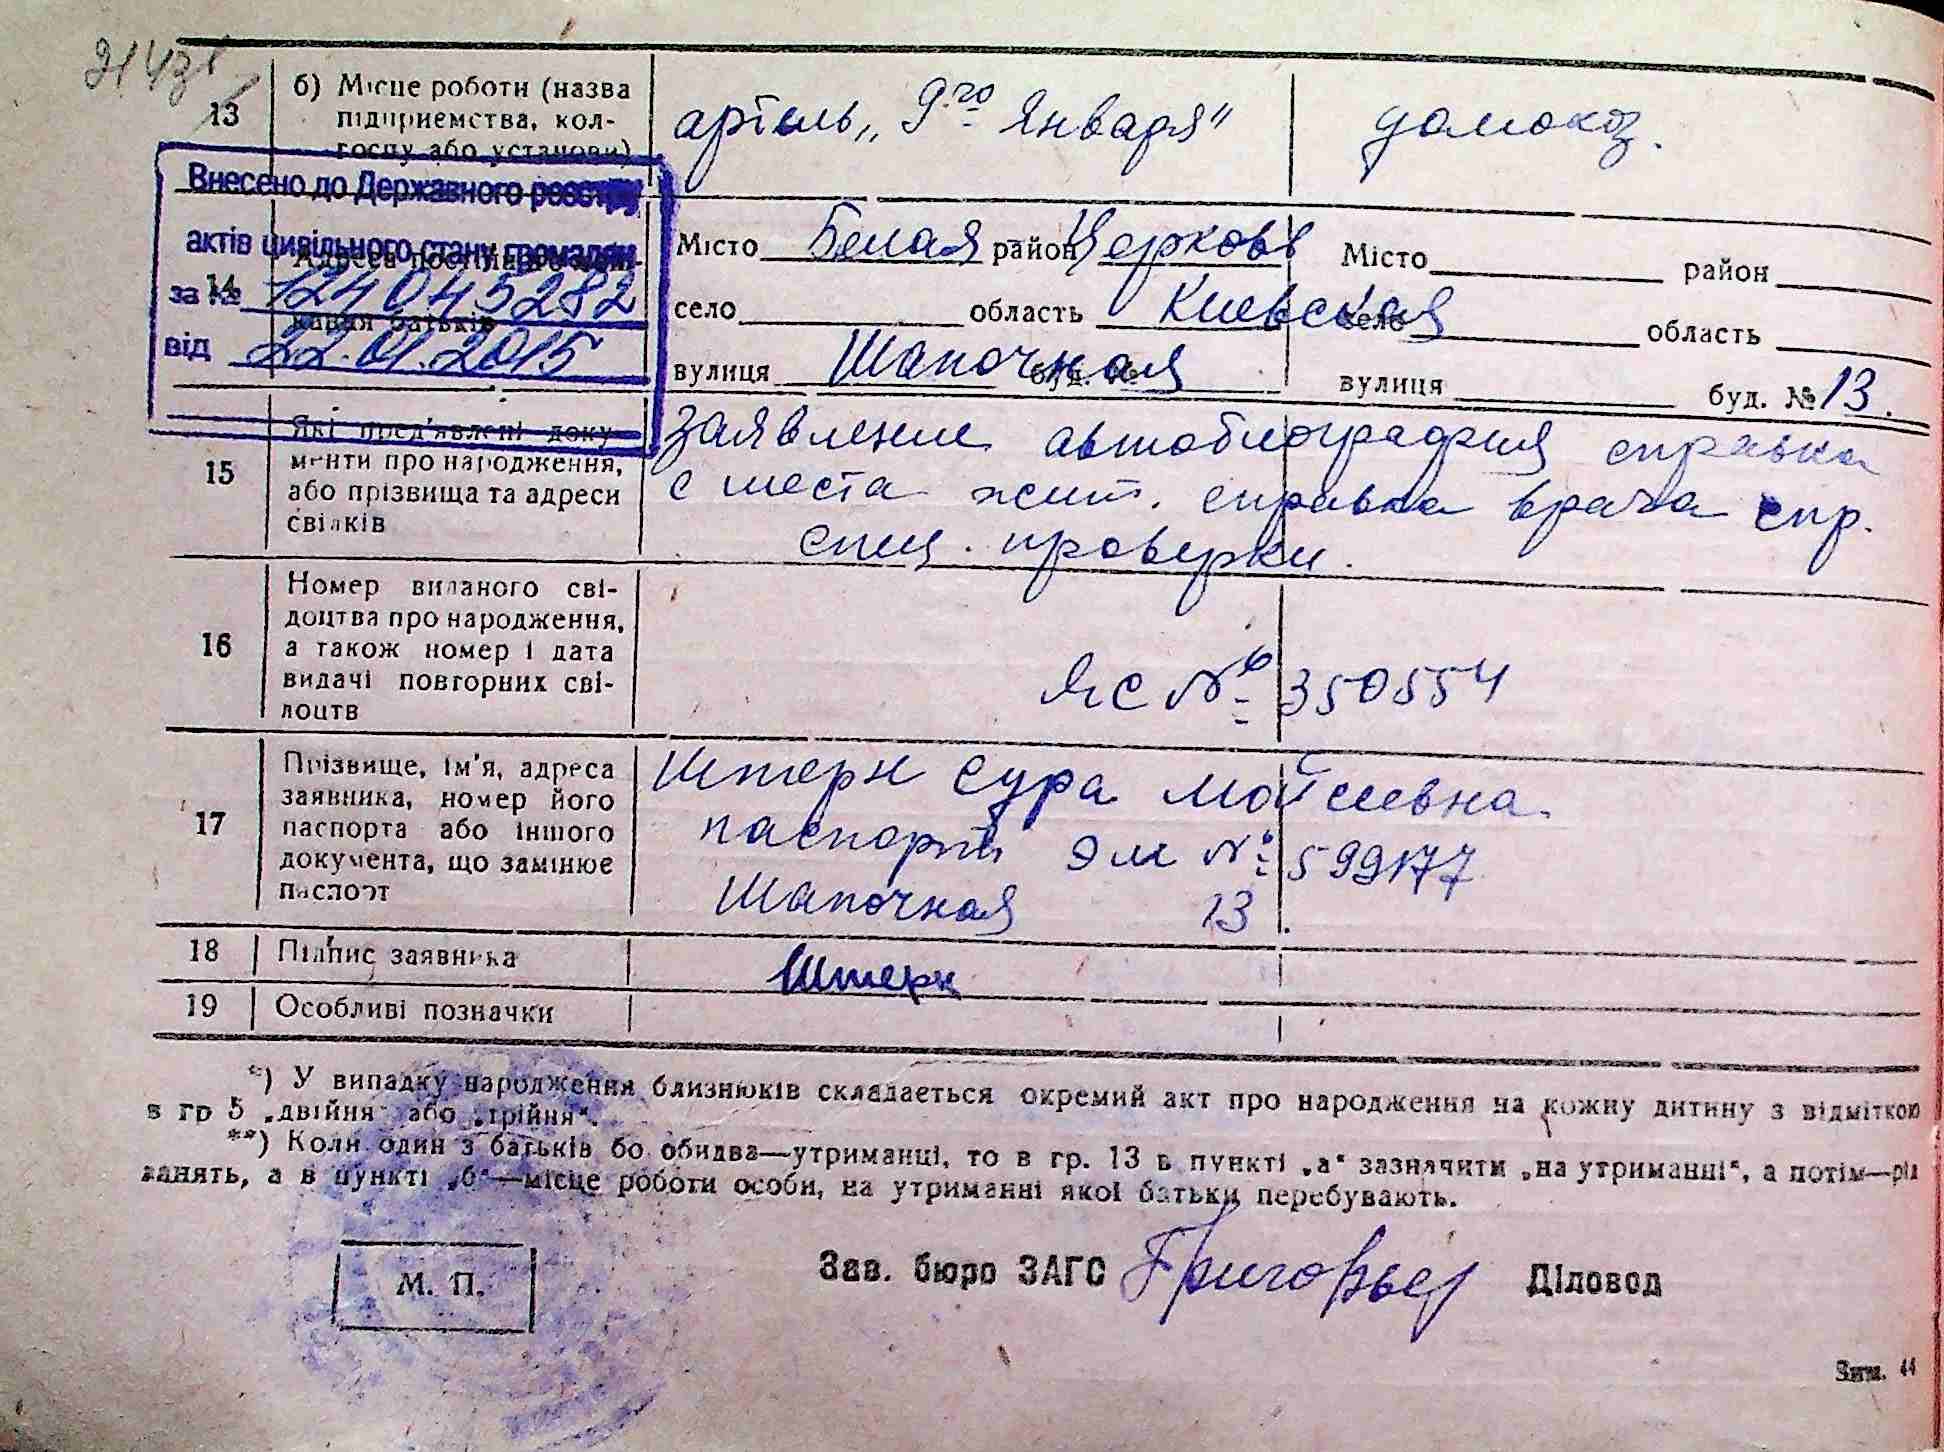 13
б) Місце роботи (назва підприємства, колгоспу або установи)
артель „9го Января"
домохоз.
Внесено до Державного реєстру
актів цивільного стану громадян
за № 124045282
від 22.01.2015
14
Місто Белая район Церковь Місто район
село область Киевская село область
вулиця Шапочная буд. № вулиця буд. № 13.
15
Які пред'явлені доку-
менти про народження,
або прізвища та адреси
свідків
заявление автобиография справка
с места жит. справка врача спр.
спец. проверки.
16
Номер виданого сві-
доцтва про народження,
а також номер і дата
видачі повторних сві-
доцтв
ЯС № 350554
17
Прізвище, ім'я, адреса
заявника, номер його
паспорта або іншого
документа, що замінює
паспорт
Штерн Сура Мойсеевна
паспорт ЭМ № 599177
Шапочная 13.
18 Підпис заявника Штерн
19 Особливі позначки
*) У випадку народження близнюків складається окремий акт про народження на кожну дитину з відміткою
в гр 5 „двійня" або „трійня".
**) Коли один з батьків бо обидва—утриманці, то в гр. 13 в пункті „а" зазначити „на утриманні", а потім—рід
занять, а в пункті „б"—місце роботи особи, на утриманні якої батьки перебувають.
М. П.
Зав. бюро ЗАГС Діловод
Зам. 44